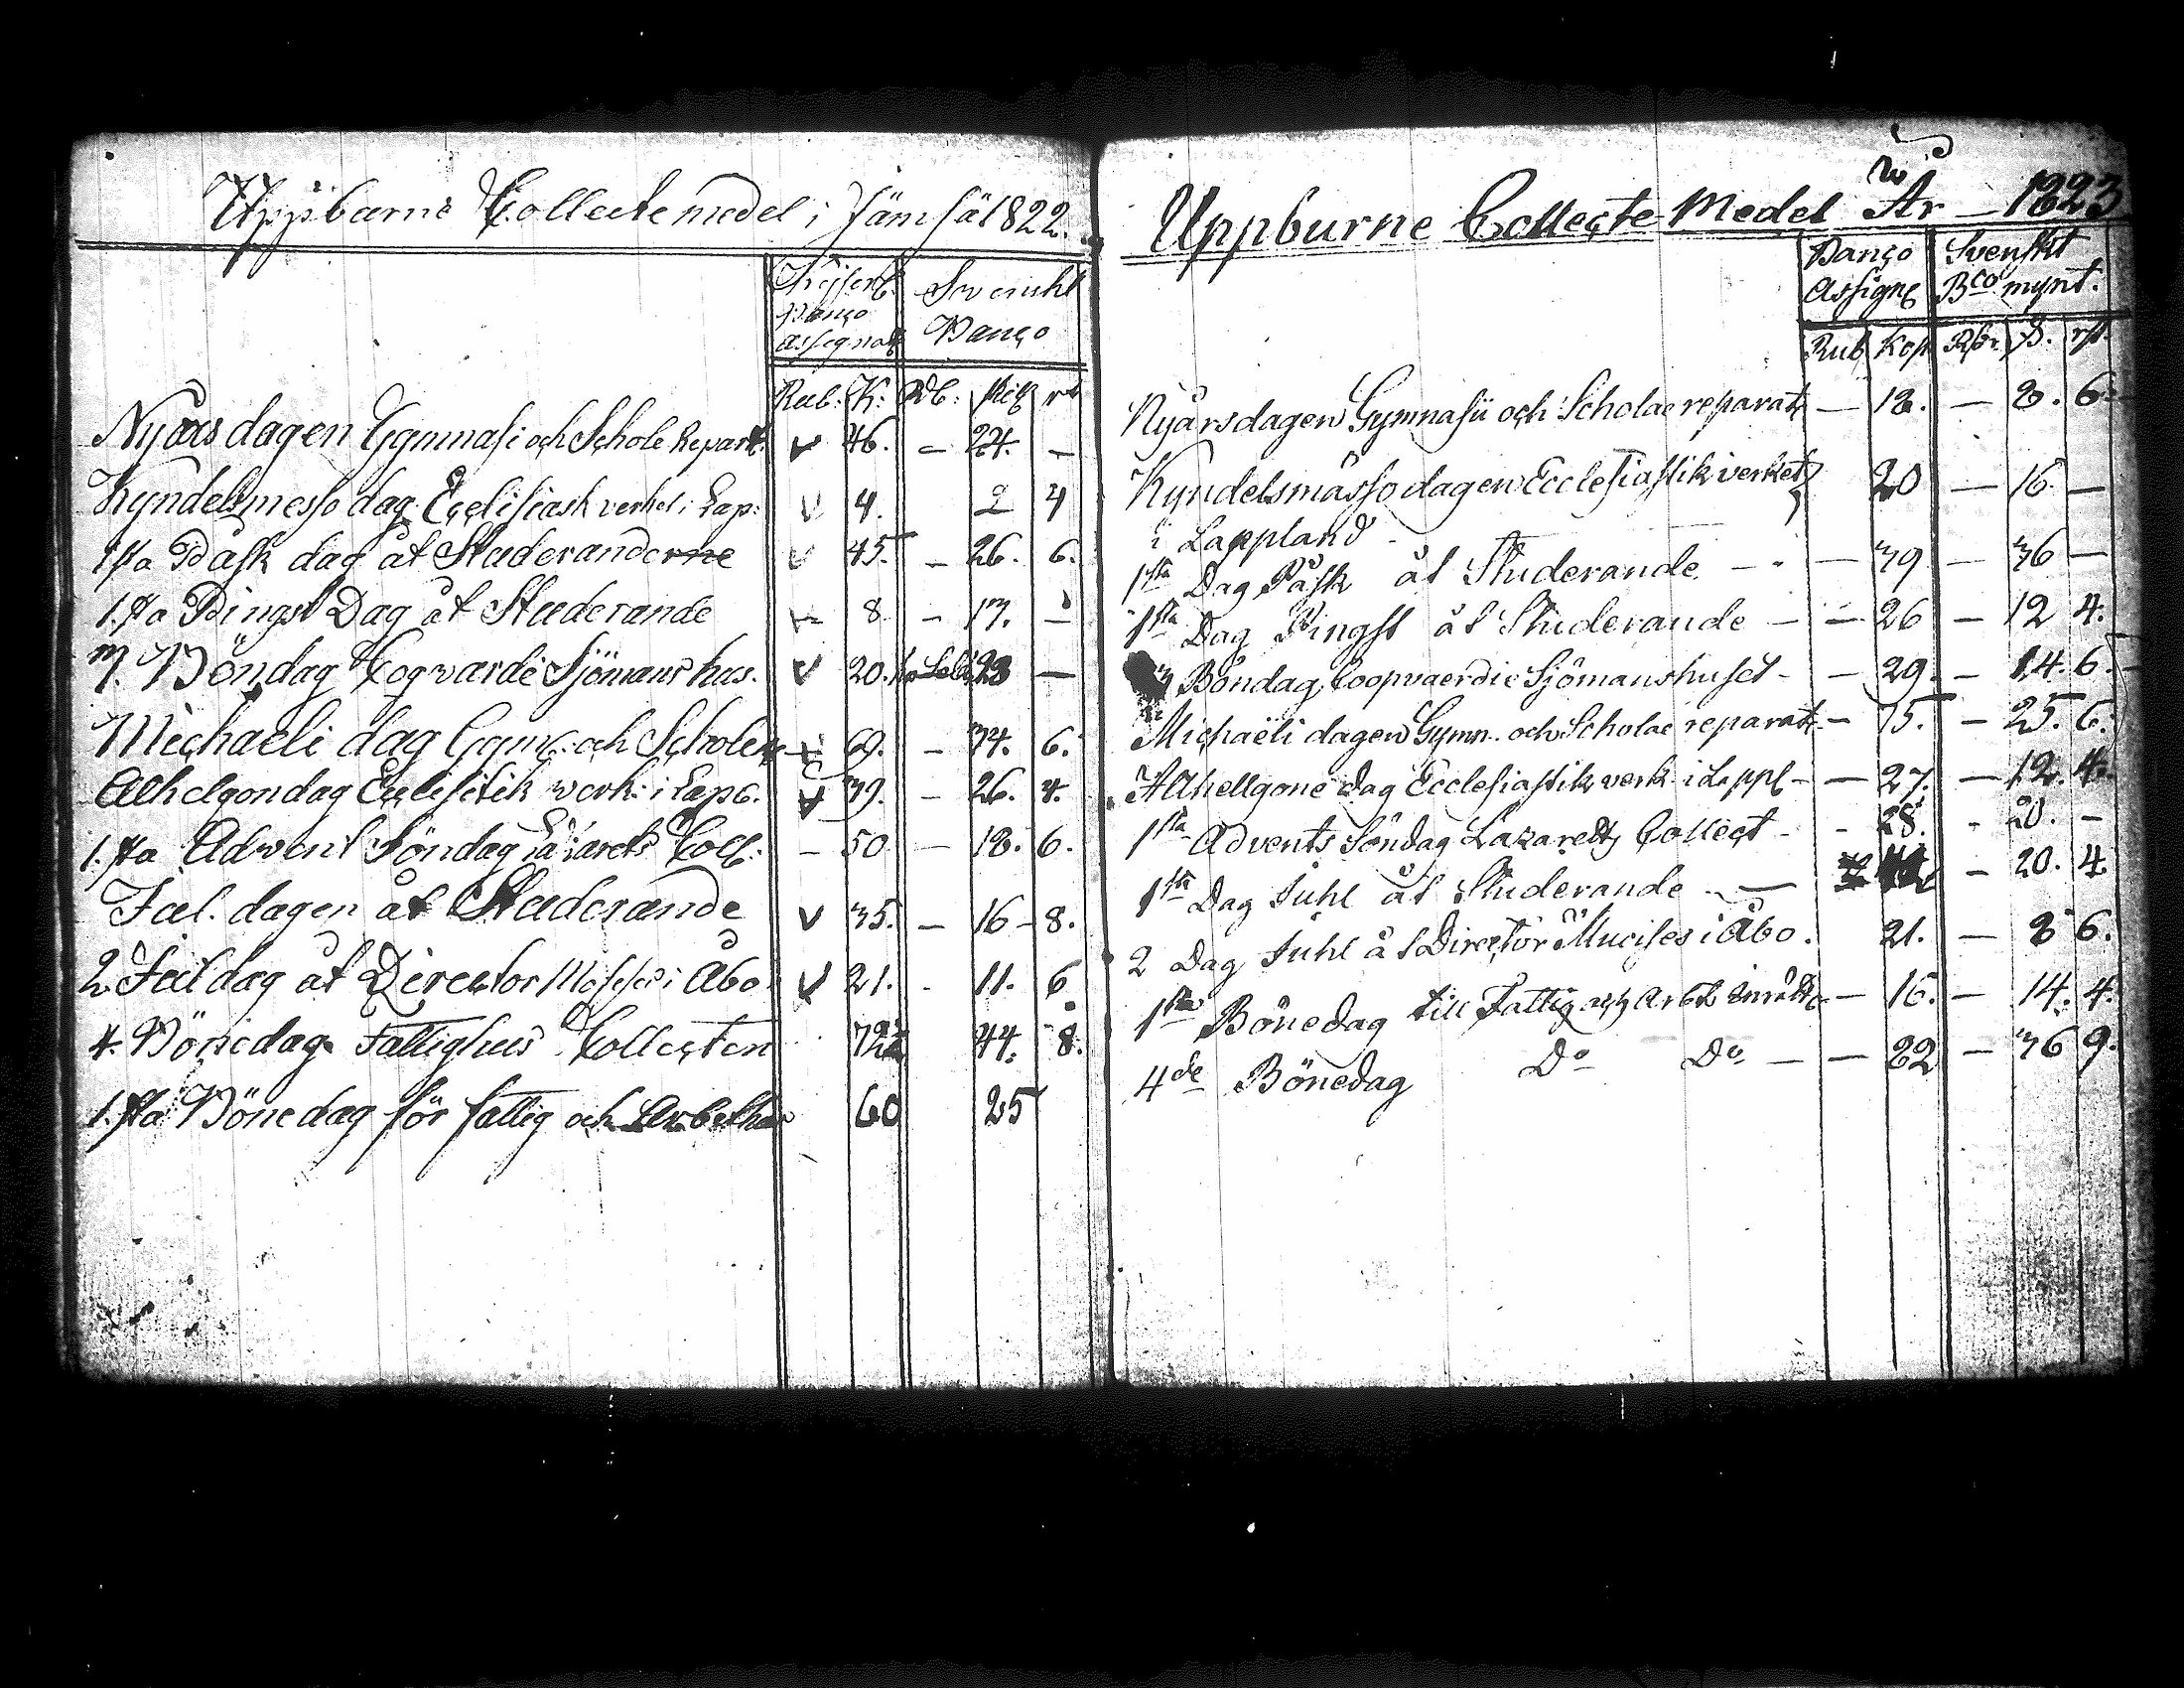 Uppbarne Collecte medel i Jämsä 1822.
Banço Assignat Svenskt Banço
Rub. K. Rd. skil r
Nyårs dagen Gymnasi och Schole Reparat. 46. — 24. —
Kyndelsmesso dag Ecclisiask verket i Lap. 4. 2 4
1sta Påsk dag åt Studeranderne 45. — 26. 6.
1.sta Pingst Dag åt Studerande 8 — 17. —
3. Böndag Cogvardi Sjömans hus. 20. 23 —
Michaeli dag Gym. och Scholen 69. — 34. 6.
Alhelgondag Eclisistik verk. i Lap. 39. — 26. 4.
1.sta Advent Söndag Coll. — 50 — 18. 6.
Jul. dagen åt Studerande 35. — 16 — 8.
2 Juldag åt Director i Åbo 21. 11. 6
4. Bönedag Fattighus Collecten 72 44. 8.
1.sta Bönedag för fattig och Arbethus 60 25
Uppburne Collecte Medel År — 1823
Banço Assign Svenskt Bco mynt.
Rub Kop Rdr. ß. rst.
Nyårsdagen Gymnasii och Scholae reparat — 18. — 8. 6.
Kyndelsmässodagen Ecclesiastikverket 20 — 16 —
i Lappland
1sta Dag Påsk åt Studerande — — 39 — 36 —
1sta Dag Pingst åt Studerande — — 26 — 12 4.
3 Böndag, Coopvaerdie Sjömanshuset — — 29. — 14. 6.
Michaëli dagen Gymn. och Scholae reparat — 75. — 25. 6.
Allhellgone dag Ecclesiastik verk i Lappl — — 27. — 12. 4.
1sta Advents Söndag Lazaretts Collect — - 28. - 20. —
1sta Dag Juhl åt Studerande — — 20. 4.
2 Dag Juhl åt Director i Åbo. 21. — 8 6.
1sta Bönedag till Fattig och — 16. — 14. 4.
4de Bönedag Do Do — — 82 — 36 9.